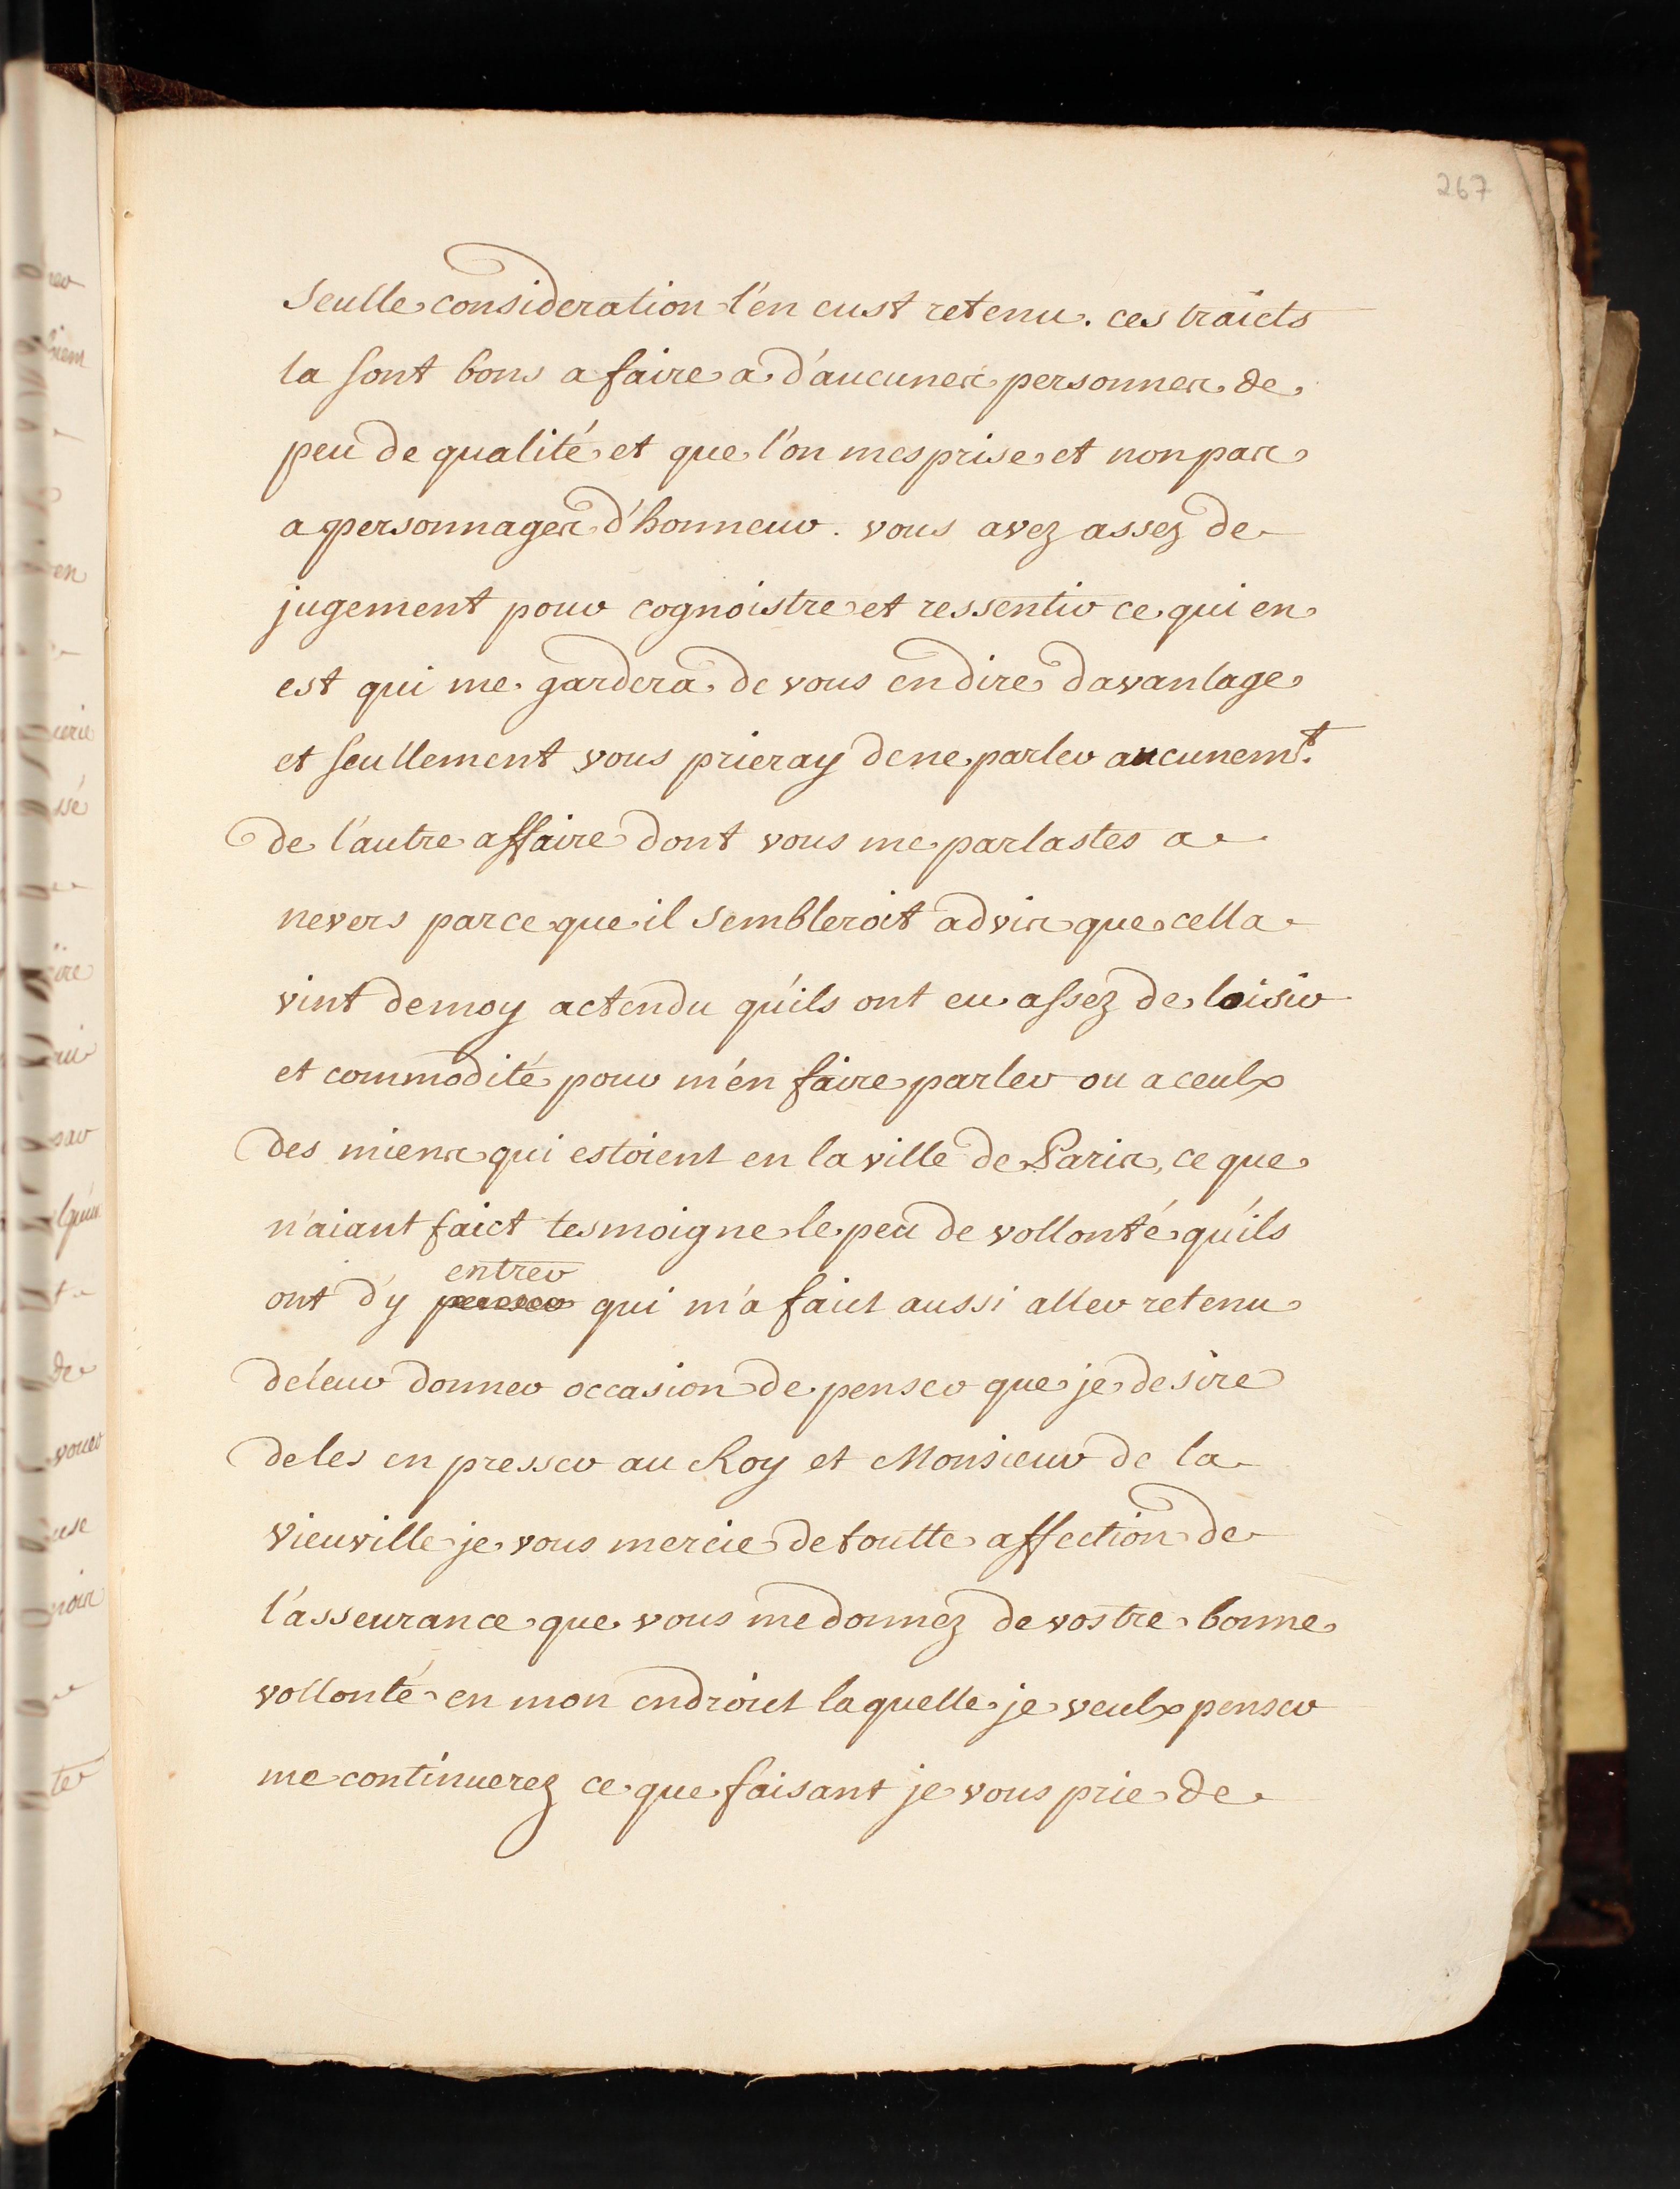 267
Seulle consideration l'en eust retenu. ces traicts
la sont bons a faire a d'aucunes personnes de
peu de qualité et que l'on mesprise et non pas
a personnages d'honneur. vous avez assez de
jugement pour cognoistre et ressentir ce qui en
est qui me gardera de vous en dire davantage
et seullement vous prieray de ne parler aucunemt.
de l'autre affaire dont vous me parlastes a
nevers parce que il sembleroit advis que cella
vint de moy actendu qu'ils ont eu assez de loisir
et commodité pour m'en faire parler ou a ceulx
des miens qui estoient en la ville de Paris, ce que
n'aiant faict tesmoigne le peu de vollonté qu'ils
entrer
ont d'y penser qui m'a faict aussi aller retenu
de leur donner occasion de penser que je desire
de les en presser au Roy et Monsieur de la
Vieuville je vous mercie de toutte affection de
l'asseurance que vous me donnez de vostre bonne
vollonté en mon endroict laquelle je veulx penser
me continuerez ce que faisant je vous prie de